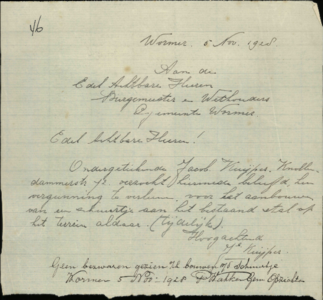 46
Wormer 5 Nov. 1928
Aan de
Edel Achtbare Heeren
Burgemeester en Wethouders
Gemeente Wormer
Edel Achtbare Heeren!
Ondergetekende Jacob Kuijper,
verzoekt hiermede beleefd, hem
vergunning te verlenen voor het aanbouwen
van een schuurtje aan het bestaand stal op
het terrein aldaar (Tijdelijk).
Hoogachtend
Jb Kuijper.
Geen bezwaren gezien te bouwen Schuurtje
Wormer 5 Nov: 1928 Gem Opzichter